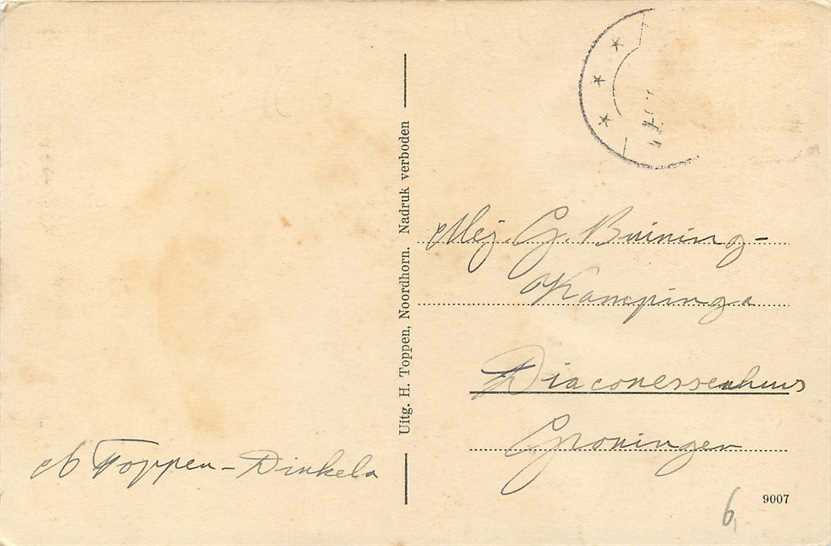 N Toppen - Dinkela
Uitg. H. Toppen, Noordhorn. Nadruk verboden
Mej. G. Buining -
Kampinga
Diaconessenhuis
Groningen
9007
6,